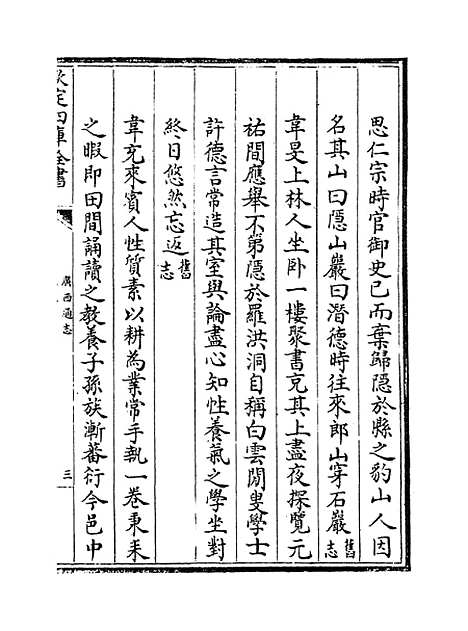 思仁宗時官御史已而棄歸隱於縣之豹山人因
名其山曰隱山巖曰潛德時往來郎山穿石巖舊志
韋旻上林人坐卧一樓聚書充其上盡夜探覽元
祐間應舉不第隱於羅洪洞自稱白雲閒叟學士
許德言常造其室與論盡心知性養氣之學坐對
終日悠然忘返舊志
韋克來賓人性質素以耕為業常手執一卷秉耒
之暇即田間誦讀之教養子孫族漸蕃衍今邑中
欽定四庫全書
廣西通志
三